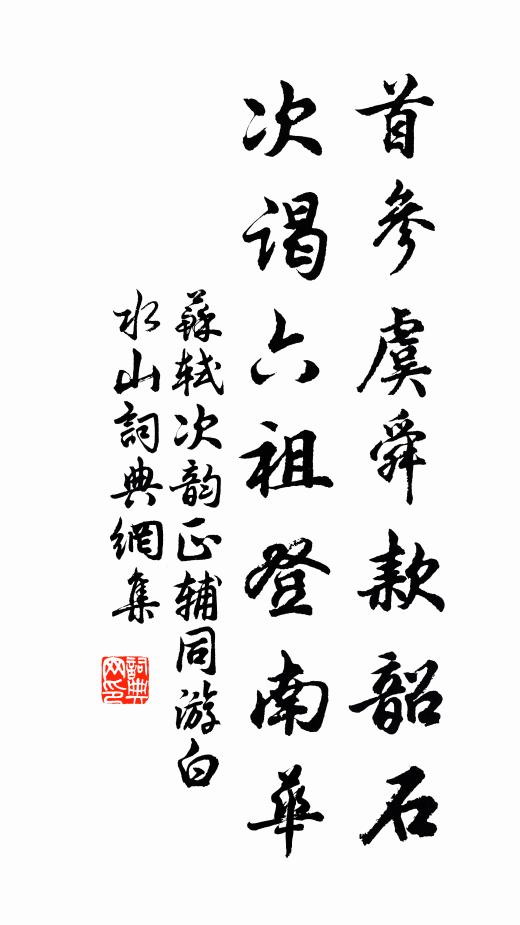 首參虞舜款韶石
次谒六祖登南華
蘇軾次韵正輔同游白
水山詞典網集
詞典网印